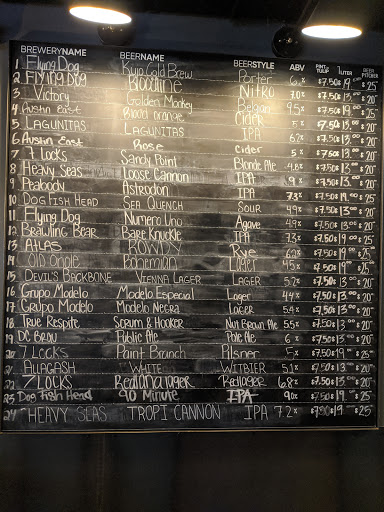 BREWERYNAME BEERNAME BEERSTYLE ABV PINT OR TULIP 1 LITER BEER PITCHER
1 Flying Dog Kujo Cold Brew Porter $7.50 $19.00 $25
2 FLYING DOG Bloodline Nitro 7.0% $7.50 $13.00 $20
3 Victory Golden Monkey Belgian 9.5% $7.50 $19.00 $25
4 Austin East Blood Orange Cider 5% $7.50 $13.00 $20
5 LAGUNITAS LAGUNITAS IPA $7.50 $13.00 $20
6 Austin East Rose Cider 5% $7.50 $13.00 $20
7 7 Locks Sandy Point Blonde Ale 4.8% $7.50 $13.00 $20
8 Heavy Seas Loose Cannon IPA $7.50 $13.00 $20
9 Peabody Astrodon IPA 7.3% $7.50 $19.00 $25
10 DOGFISH HEAD SEA QUENCH SOUR 4.9% $7.50 $19.00 $25
11 Flying Dog Numero Uno Agave 4.9% $7.50 $13.00 $20
12 Brawling Bear Bare Knuckle IPA 7.3% $7.50 $19.00 $25
13 ATLAS ROWDY Rye $7.50 $19.00 $25
14 Old Oriole Bohemian Lager 4.5% $7.50 $19.00 $25
15 DEVIL'S BACKBONE VIENNA LAGER LAGER 5.2% $7.50 $13.00 $20
16 Grupo Modelo Modelo Especial Lager 4.4% $7.50 $13.00 $20
17 Grupo Modelo Modelo Negra Lager 5.4% $7.50 $13.00 $20
18 True Respite Scrum & Hooker Nut Brown Ale 5.5% $7.50 $13.00 $20
19 DC BRAU Public Ale Pale Ale 6% $7.50 $13.00 $20
20 7 Locks Paint Branch Pilsner 5% $7.50 $19.00 $25
21 ALLAGASH WHITE WITBIER 5.1% $7.50 $13.00 $20
22 7 LOCKS Redland lager Redlager 6.8% $7.50 $13.00 $20
23 Dog Fish Head 90 Minute IPA 9.0% $7.50 $19.00 $25
24 HEAVY SEAS TROPI CANNON IPA 7.2% $7.50 $19.00 $25